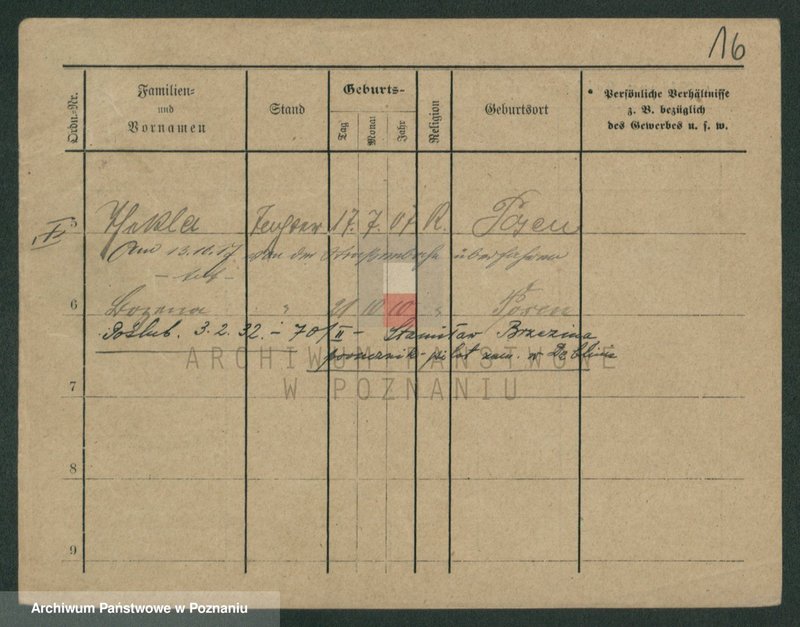 16
Ordn.-Nr.
Familien-
und
Vornamen
Stand
Geburts-
Tag
Monat
Jahr
Religion
Geburtsort
Persönliche Verhältnisse
z. B. bezüglich
des Gewerbes u. s. w.
5 Thekla Tochter 17. 7. 07 R. Posen
Am 13.10.17 von der Straßenbahn überfahren
- tot -
6 Bozena " 21 10 10 " Posen
Poślub. 3.2.32. - 701/II - Stanisław Brzezina
porucznik-pilot zam. w Dęblinie
ARCHIWUM PAŃSTWOWE
W POZNANIU
7
8
9
Archiwum Państwowe w Poznaniu